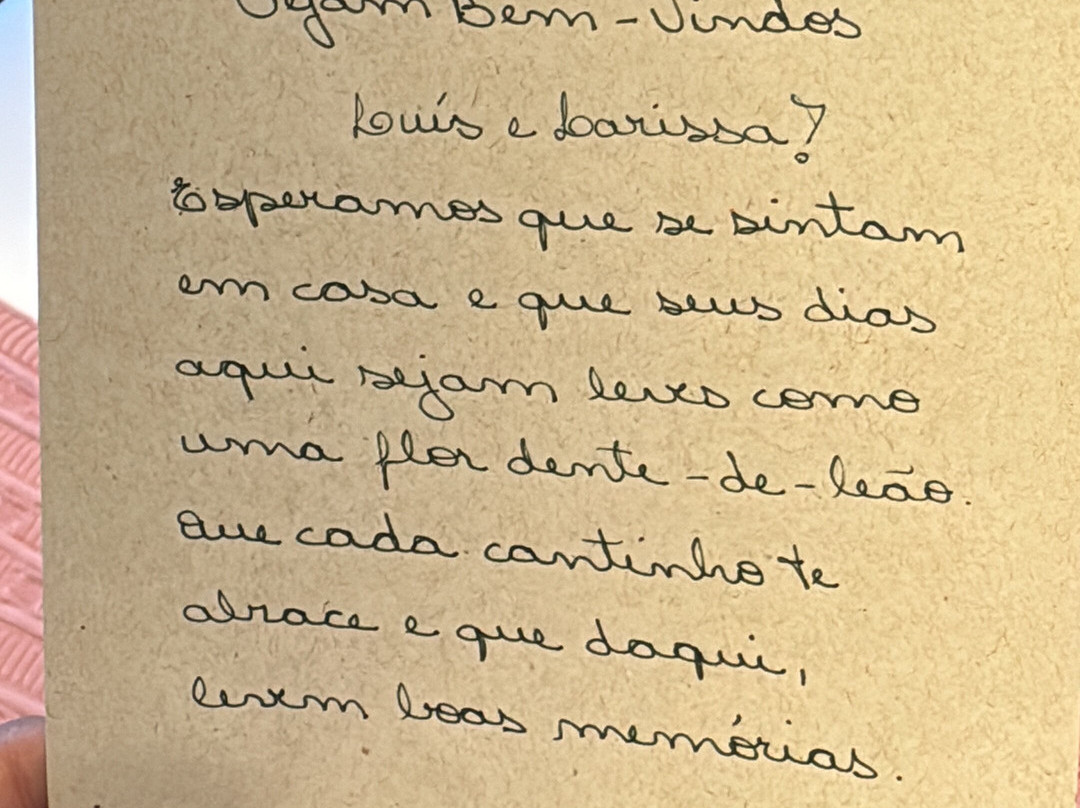 Sejam Bem-Vindos
Luís e Larissa!
Esperamos que se sintam
em casa e que seus dias
aqui sejam leves como
uma flor dente-de-leão.
Que cada cantinho te
abrace e que daqui,
levem boas memórias.